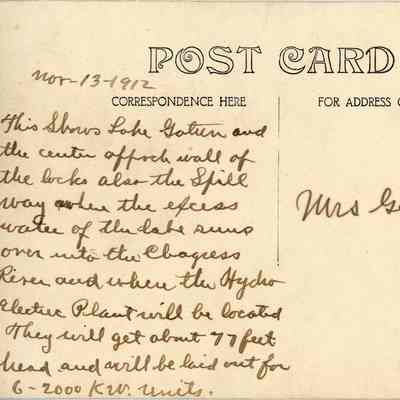 POST CARD
Nov-13-1912
CORRESPONDENCE HERE
FOR ADDRESS
This Shows Lake Gatun and
the center approch wall of
the locks also the Spill
way when the excess
water of the lake runs
over into the Chagress
River and where the Hydro
Electric Plant will be located
They will get about 77 feet
head and will be laid out for
6-2000 K.W. Units.
Mrs